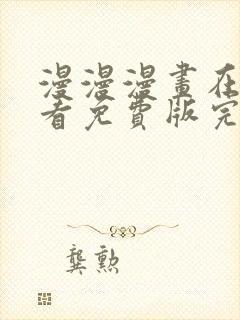 漫漫漫畫在
看免費版完
龔勲